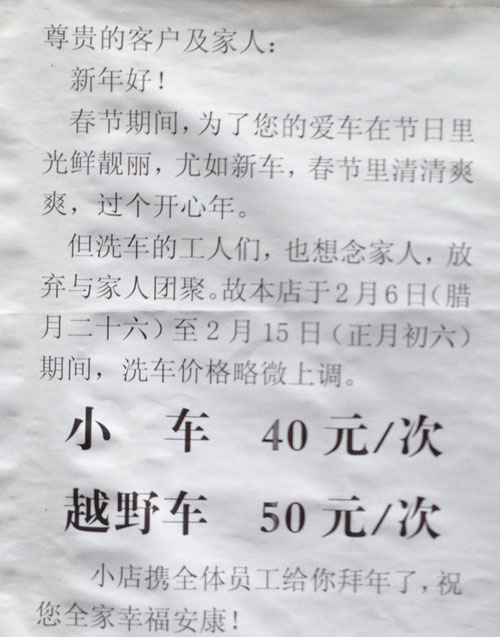 尊贵的客户及家人：
新年好！
春节期间，为了您的爱车在节日里
光鲜靓丽，尤如新车，春节里清清爽
爽，过个开心年。
但洗车的工人们，也想念家人，放
弃与家人团聚。故本店于2月6日（腊
月二十六）至2月15日（正月初六）
期间，洗车价格略微上调。
小 车 40元/次
越野车 50元/次
小店携全体员工给你拜年了，祝
您全家幸福安康！